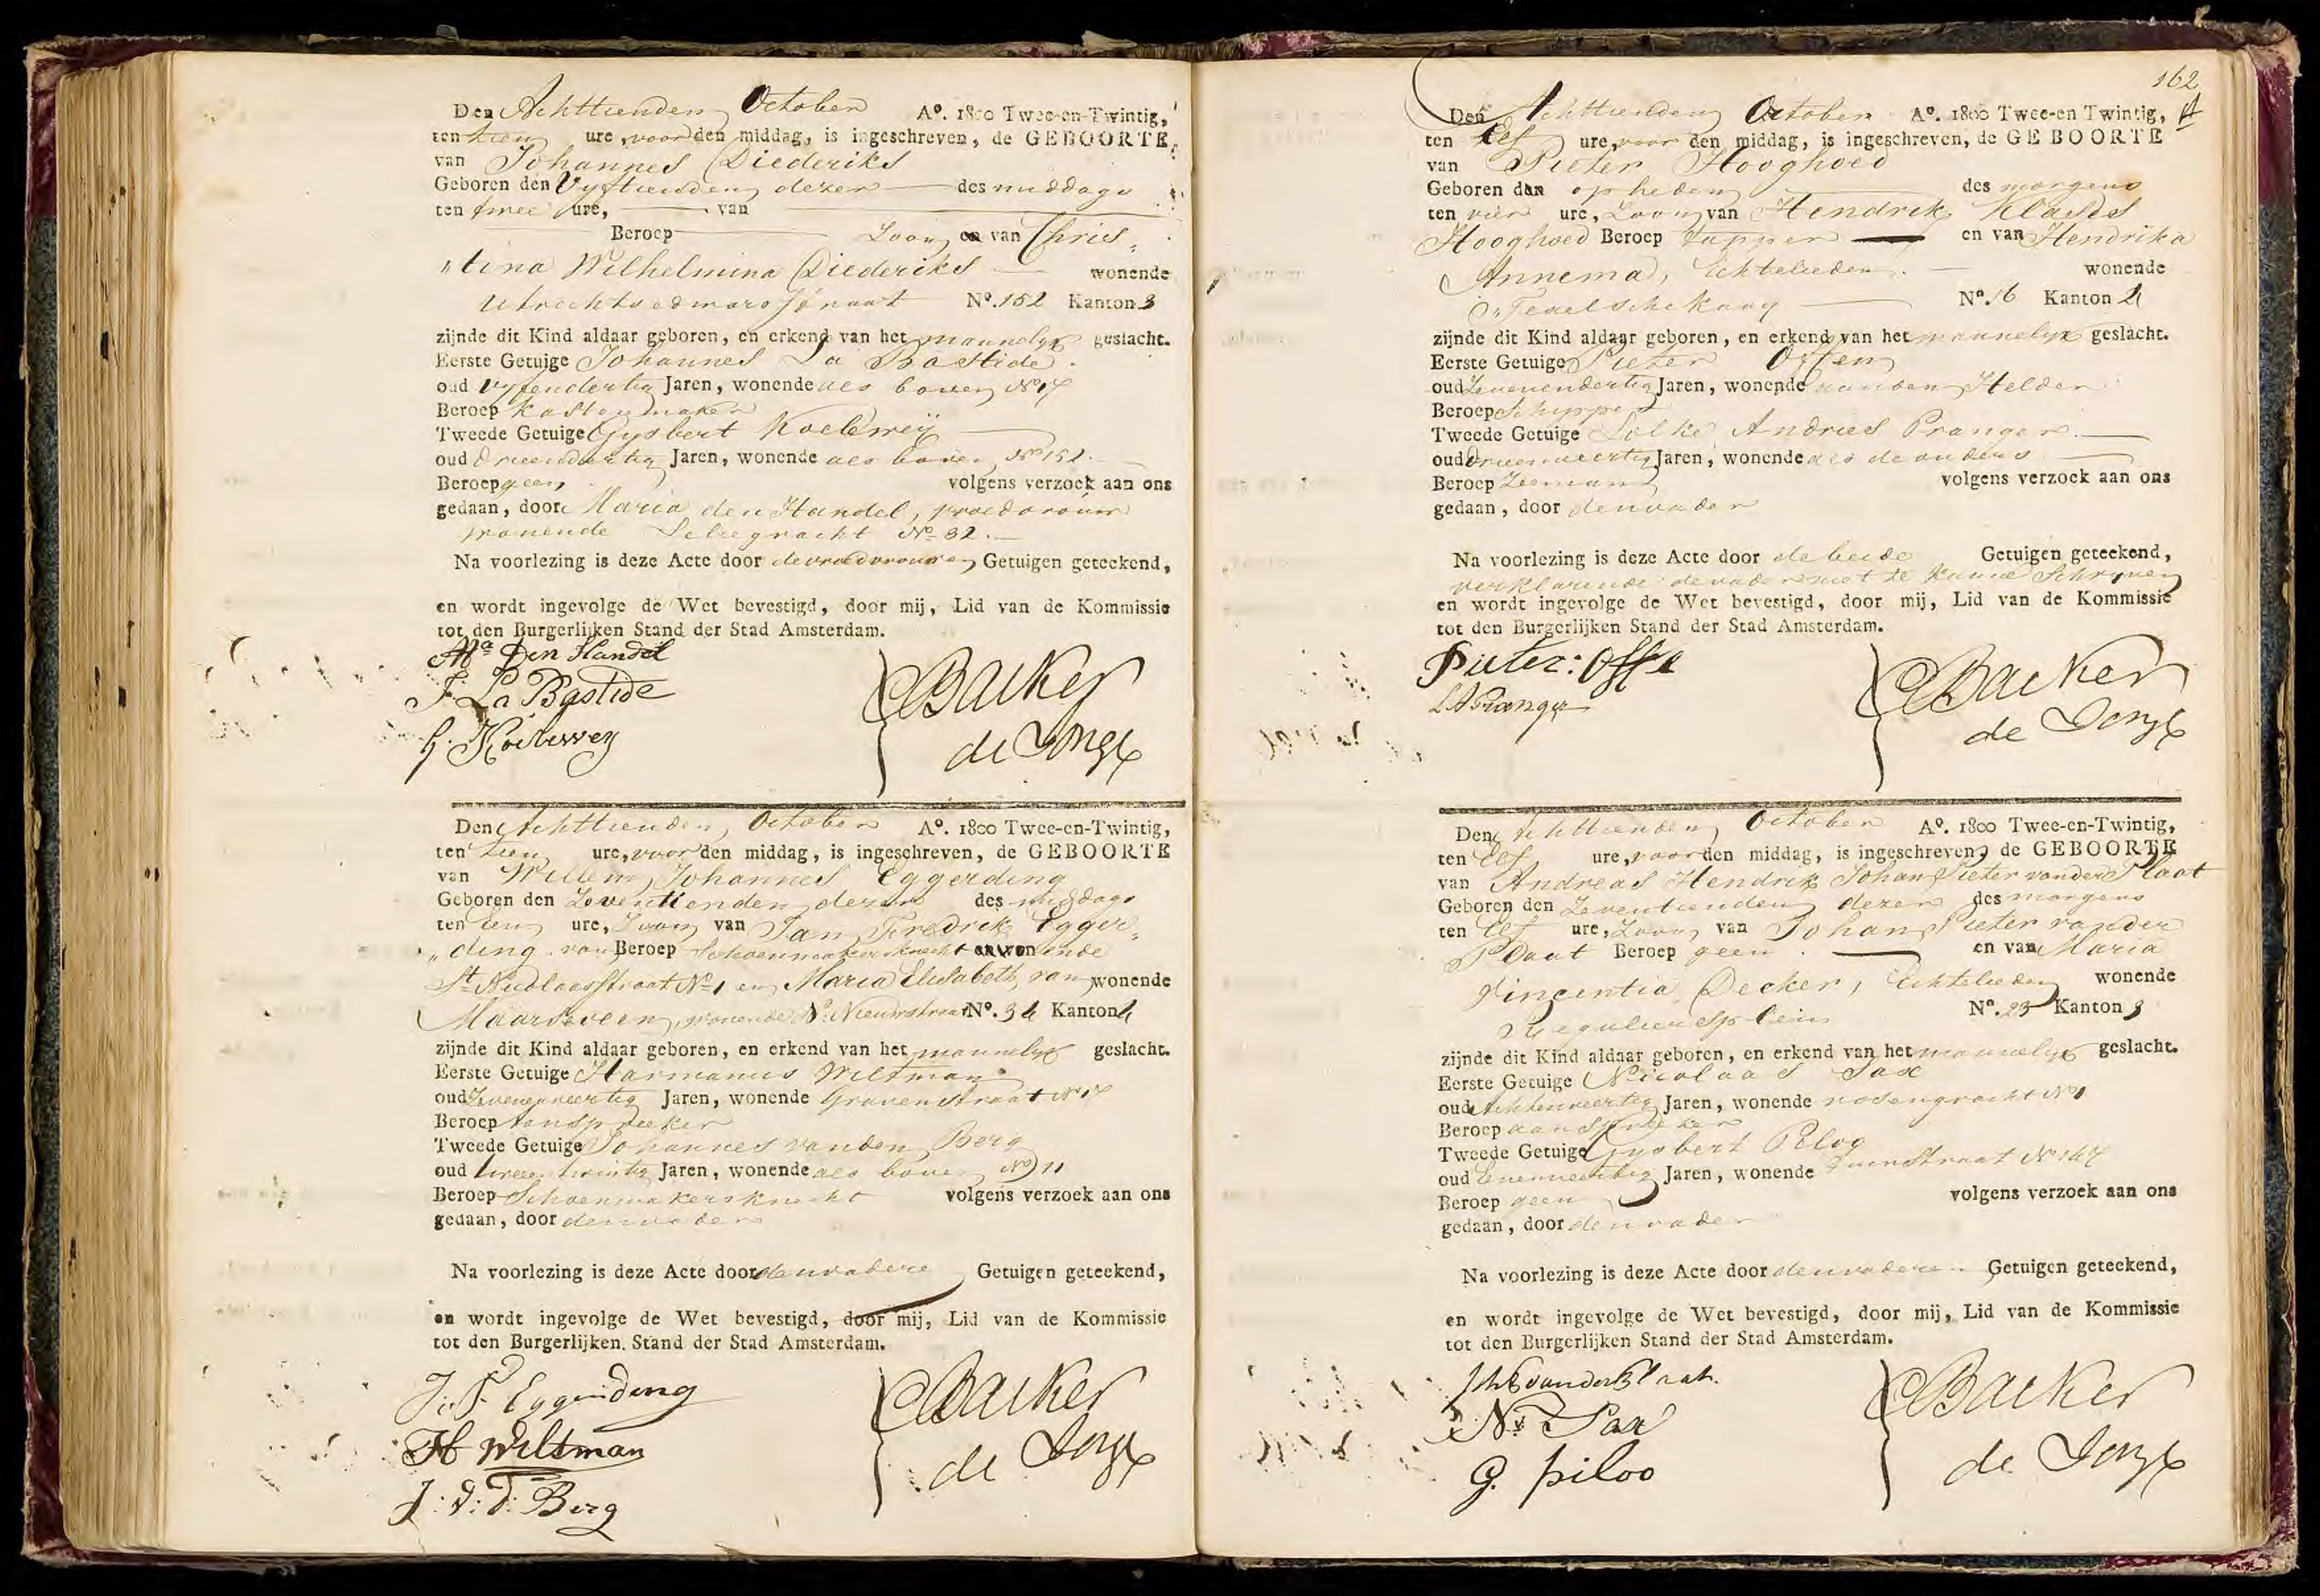 Den Achttienden October Aº. 1800 Twee-en-Twintig,
ten tien ure, voor den middag, is ingeschreven, de GEBOORTE
van Johannes Diederiks
Geboren den Vyftienden dezer des middags
ten twee ure, van
Beroep Zoon en van Chris„
„tina Wilhelmina Diederiks wonende
Utrechtsedwarsstraat Nº. 152 Kanton 3
zijnde dit Kind aldaar geboren, en erkend van het mannelyk geslacht.
Eerste Getuige Johannes La Bastide
oud vyfendertig Jaren, wonende als boven Nº 17
Beroep Kastenmaker
Tweede Getuige Gysbert Koelewey
oud drieendertig Jaren, wonende als boven Nº 152
Beroep geen volgens verzoek aan ons
gedaan, door Maria den Handel, vroedvrouw
wonende Leliegracht Nº 32.
Na voorlezing is deze Acte door de vroedvrouw en Getuigen geteekend,
en wordt ingevolge de Wet bevestigd, door mij, Lid van de Kommissie
tot den Burgerlijken Stand der Stad Amsterdam.
Mª Den Handel
J. La Bastide
G. Koelewey
Backer
de Jonge
Den Achttienden October Aº. 1800 Twee-en-Twintig,
ten tien ure, voor den middag, is ingeschreven, de GEBOORTE
van Willem Johannes Eggerding
Geboren den Zeventienden dezer des middags
ten een ure, Zoon van Jan Fredrik Egger„
„ding van Beroep Schoenmakersknecht wonende
St Nicolaasstraat Nº 1 en Maria Elisabeth van wonende
Maarseveen, wonende N. Nieuwstraat Nº. 34 Kanton 4
zijnde dit Kind aldaar geboren, en erkend van het mannelyk geslacht.
Eerste Getuige Harmanus Weltman
oud Zevenenveertig Jaren, wonende Gravenstraat Nº 17
Beroep aanspreeker
Tweede Getuige Johannes van den Berg
oud tweeentwintig Jaren, wonende als boven Nº 11
Beroep Schoenmakersknecht volgens verzoek aan ons
gedaan, door den vader
Na voorlezing is deze Acte door den vader en Getuigen geteekend,
en wordt ingevolge de Wet bevestigd, door mij, Lid van de Kommissie
tot den Burgerlijken Stand der Stad Amsterdam.
J. F. Eggerding
H Weltman
J: v: d: Berg
Backer
de Jonge
162
Den Achttienden October Aº. 1800 Twee-en Twintig,
ten Elf ure, voor den middag, is ingeschreven, de GEBOORTE
van Pieter Hooghoed
Geboren den op heden des morgens
ten vier ure, Zoon van Hendrik Klases
Hooghoed Beroep tapper en van Hendrika
Annema, Echtelieden wonende
Texelschekaay Nº. 16 Kanton 2
zijnde dit Kind aldaar geboren, en erkend van het mannelyk geslacht.
Eerste Getuige Pieter Offen
oud Zevenendertig Jaren, wonende aan den Helder
Beroep Schipper
Tweede Getuige Lolke Andries Pranger
oud drieenveertig Jaren, wonende als de ouders
Beroep Zeeman volgens verzoek aan ons
gedaan, door den vader
Na voorlezing is deze Acte door de beide Getuigen geteekend,
verklarende de vader niet te kunne Schryven
en wordt ingevolge de Wet bevestigd, door mij, Lid van de Kommissie
tot den Burgerlijken Stand der Stad Amsterdam.
Pieter: Offe
L A Pranger
Backer
de Jonge
Den Achttienden October Aº. 1800 Twee-en-Twintig,
ten Elf ure, voor den middag, is ingeschreven, de GEBOORTE
van Andreas Hendrik Johan Pieter vander Plaat
Geboren den Zeventienden dezer des morgens
ten Elf ure, Zoon van Johan Pieter vander
Plaat Beroep geen en van Maria
Vincentia Decker, Echtelieden wonende
Reguliersplein Nº. 23 Kanton 3
zijnde dit Kind aldaar geboren, en erkend van het mannelyk geslacht.
Eerste Getuige Nicolaas Sax
oud Achtenveertig Jaren, wonende rosengracht Nº 1
Beroep aanspreker
Tweede Getuige Gysbert Piloo
oud Eenenveertig Jaren, wonende Nº 147
Beroep geen volgens verzoek aan ons
gedaan, door den vader
Na voorlezing is deze Acte door den vader en Getuigen geteekend,
en wordt ingevolge de Wet bevestigd, door mij, Lid van de Kommissie
tot den Burgerlijken Stand der Stad Amsterdam.
vander Plaat.
Ns Sax
G. piloo
Backer
de Jonge